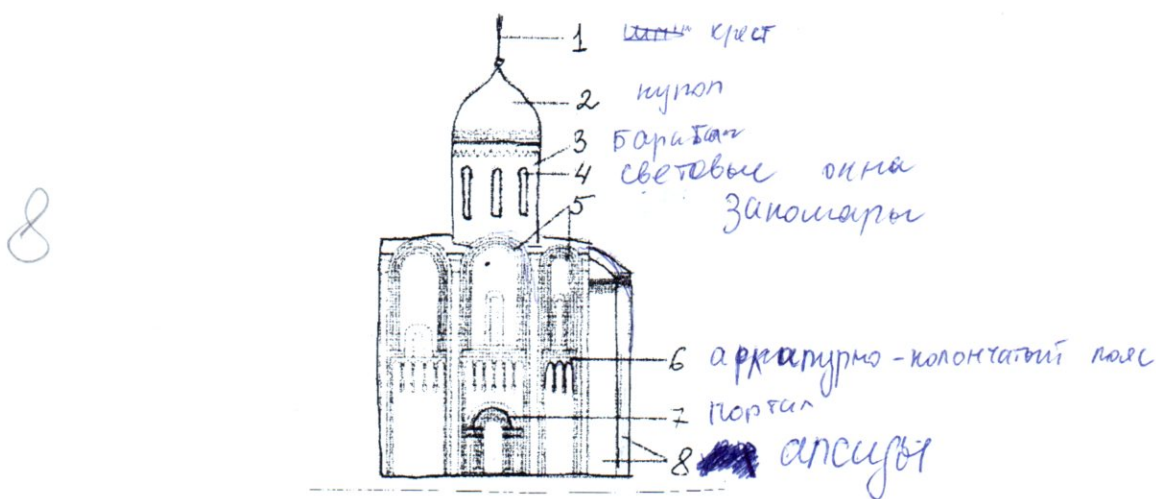 1 крест
2 купол
3 Барабан
4 световые окна
5 Закомары
8
6 аркатурно-колончатый пояс
7 портал
8 апсиды